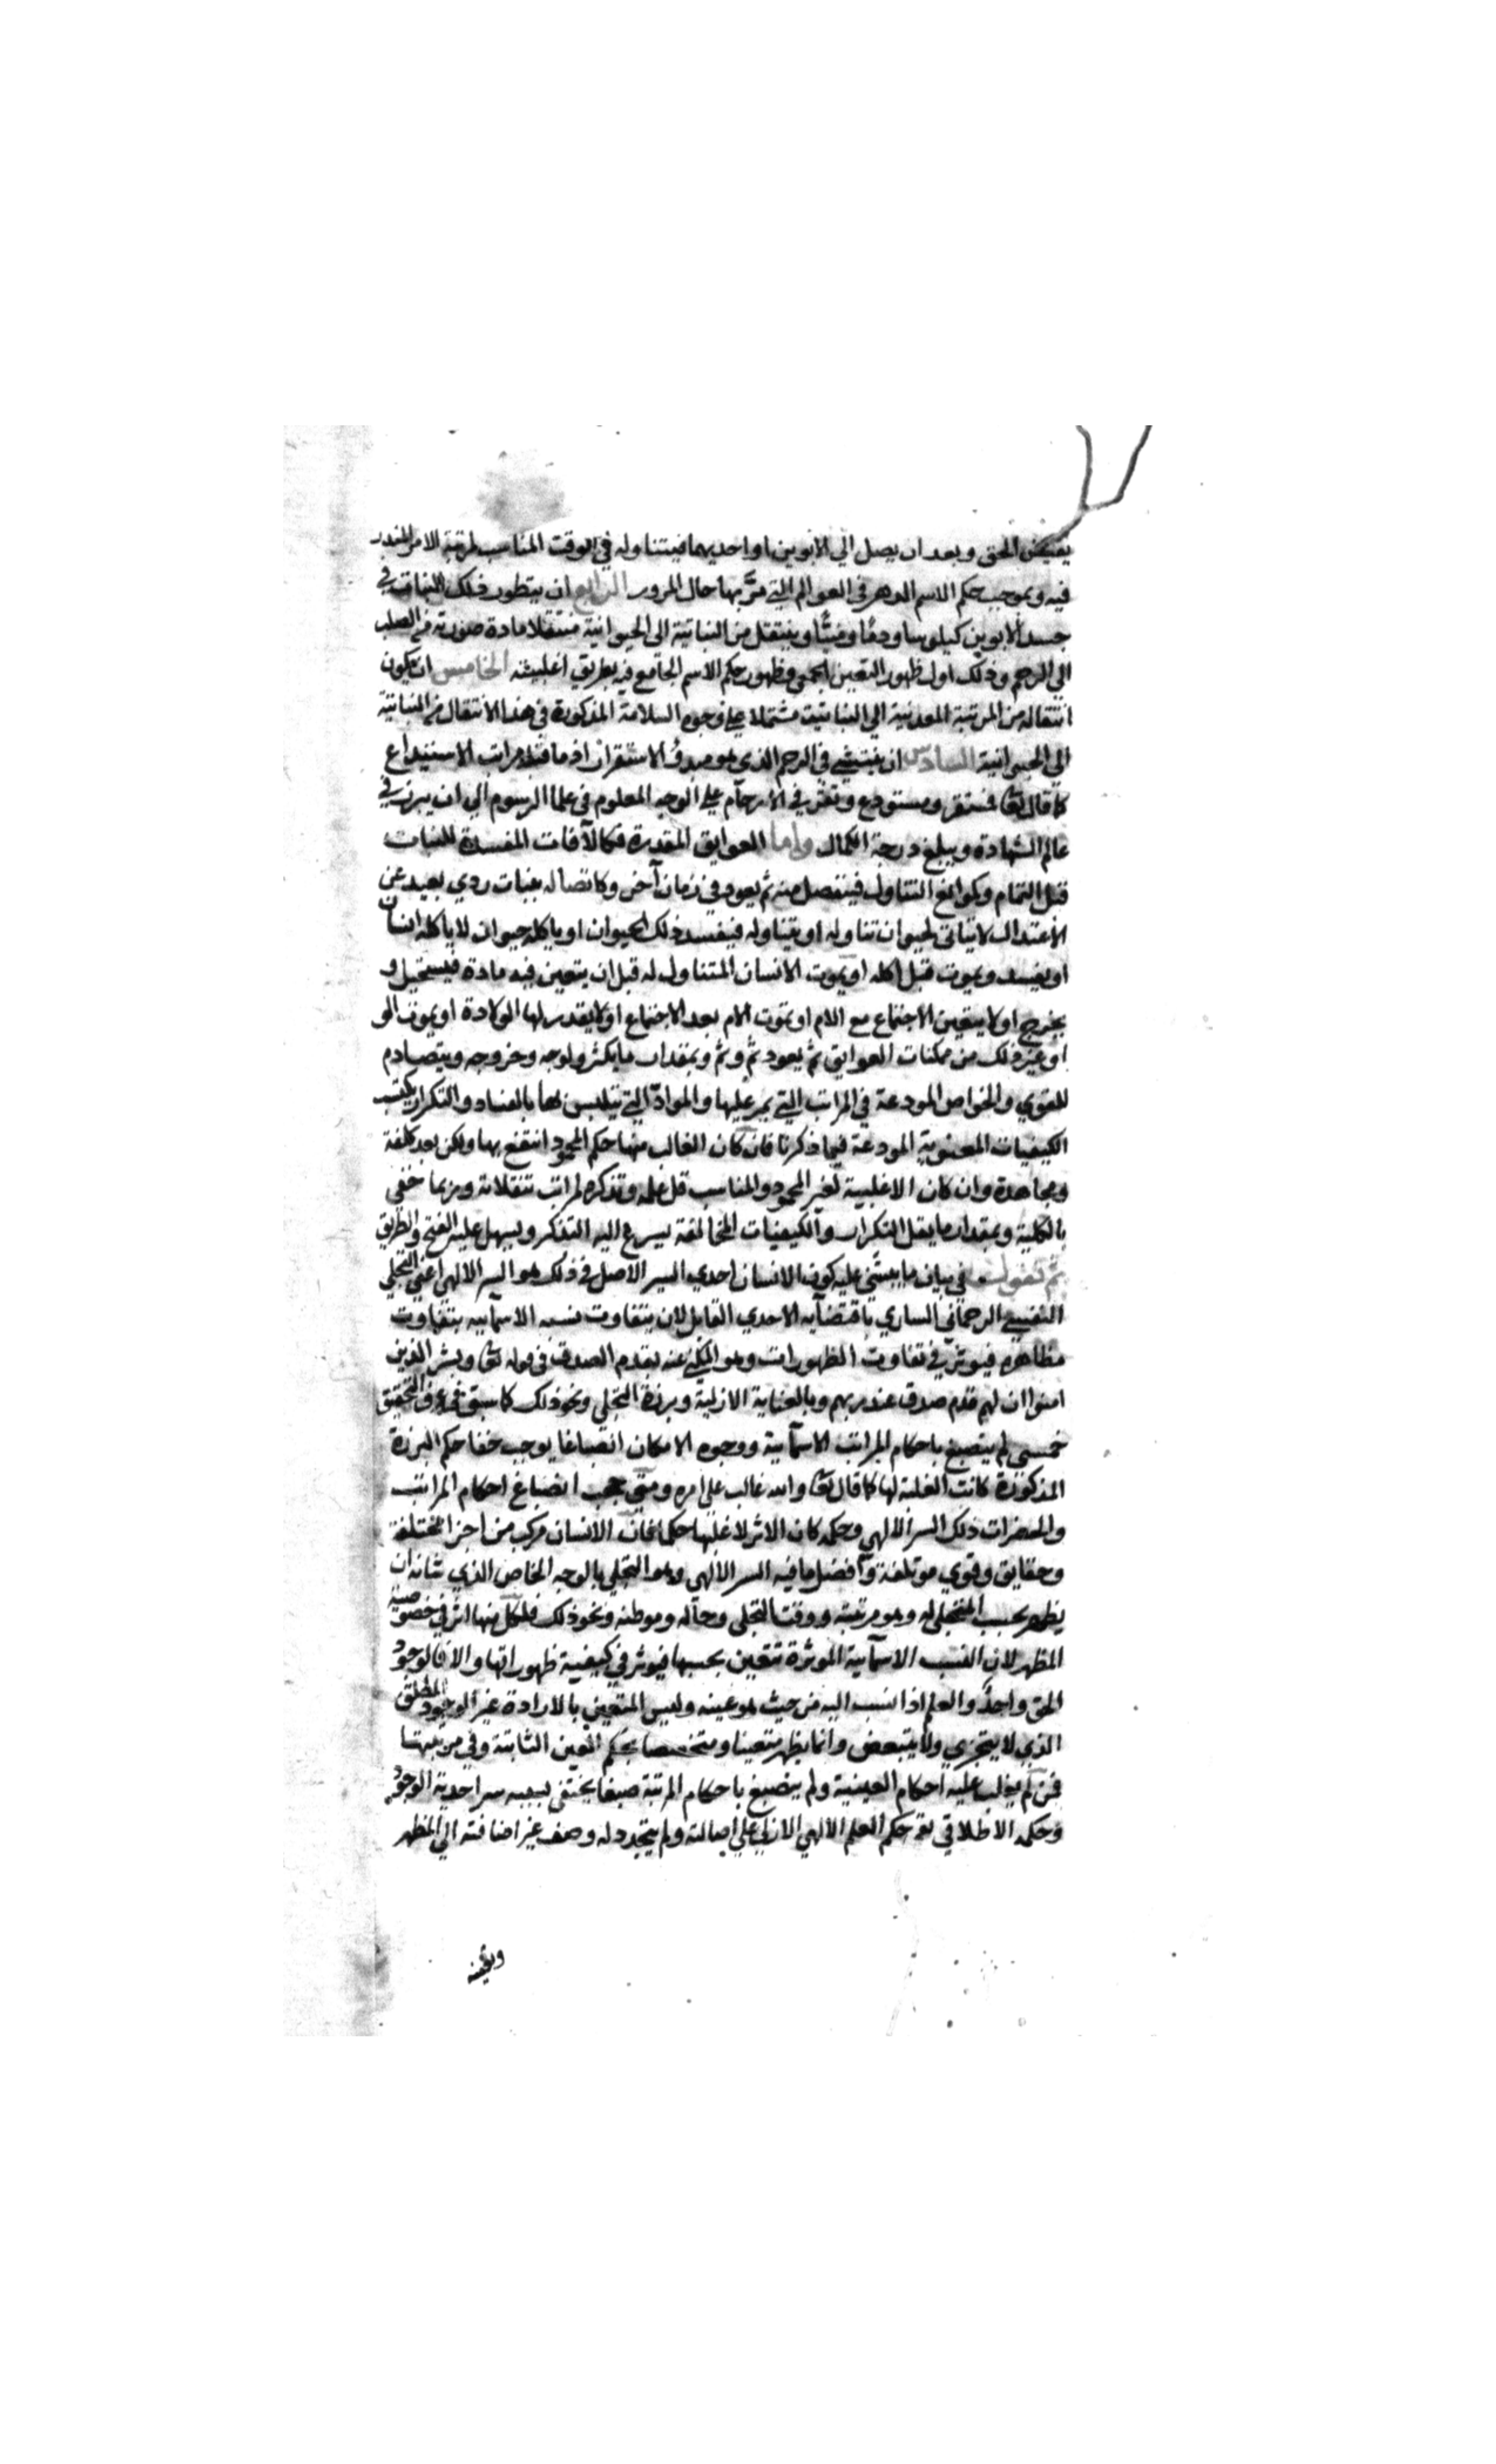 الحق وبعد ان يصل الي الابوين او احديهما فيتناوله في الوقت المناسب لمرتبة الامر المندر
فيه وبموجب حكم الاسم الدهر في العوالم التي مر بها حال المرور الرابع ان يتطور ذلك النبات في
جسد الابوين كيلوسا ودمًا ومنيًّا وينتقل من النباتية الى الحيوانية منتقلا مادة صورته من الصلب
الي الرحم وذلك اول ظهور التعين الجمعي وظهور حكم الاسم الجامع فيه بطريق اغلبيته الخامس ان يكون
انتقاله من المرتبة المعدنية الي النباتية مشتملا علي وجوه السلامة المذكورة في هذا الانتقال من النباتية
الي الحيوانية السادس ان ينتشي في الرحم الذي هو مبدؤ الاستقرار اذ ما قبله مراتب الاستيداع
كما قال تعا فمستقر ومستودع ونقر في الارحام علي الوجه المعلوم في علما الرسوم الي ان يبرز في
عالم الشهادة ويبلغ درجة الكمال واما العوايق المقدرة فكالآفات المفسدة للنبات
قبل التمام وكموانع التناول فينفصل منه ثم يعود في زمان آخر وكاتصاله بنبات ردي بعيد عن
الاعتدال لا يتاتى لحيوان تناوله او يتناوله فيفسد ذلك الحيوان او ياكله حيوان لا ياكله انسان
او يفسد ويموت قبل اكله او يموت الانسان المتناول له قبل ان يتعين فيه مادة فيستحيل و
يخرج او لا يتعين الاجتماع مع الام او تموت الام بعد الاجتماع او لا يقدر لها الولادة او يموت الو
او غير ذلك من ممكنات العوايق ثم يعود ثم وثم وبمقدار ما يكثر ولوجه وخروجه ويتصادم
للقوي والخواص المودعة في المراتب التي يمر عليها والمواد التي يتلبس بها بالفساد والتكرار يكتسب
الكيفيات المعنوية المودعة فيما ذكرنا فان كان الغالب منها حكم المحمود انتفع بها ولكن بعد كلفة
ومجاهدة وان كان الاغلبية لغير المحمود والمناسب قل علمه وتذكره لمراتب تنقلاته وربما خفي
بالكلية وبمقدار ما يقل التكرار والكيفيات المخالفة يسرع اليه التذكر ويسهل عليه الفتح والطريق
ثم نقول في بيان ما يبتني عليه كون الانسان احدي السير الاصل في ذلك هو السر الالهي اعني التجلي
النفسي الرحماني الساري باقتضايه الاحدي القابل لان يتفاوت نسبه الاسمآييه بتفاوت
مظاهره فيوثر في تفاوت الظهورات وهو المكنى عنه بقدم الصدق في قوله تعا وبشر الذين
امنوا ان لهم قدم صدق عند ربهم وبالعناية الازلية وبرزة التجلي ونحو ذلك كما سبق في عرف التحقيق
فمتى لم ينصبغ باحكام المراتب الاسمآيية ووجوه الامكان انصباغا يوجب خفا حكم البرزة
المذكورة كانت الغلبة لها كما قال تعا والله غالب على امره ومتى حجب انصباغ احكام المراتب
والحضرات ذلك السر الالهي وحكمه كان الاثر لاغلبها حكما فان الانسان مركب من اجزا مختلفة
وحقايق وقوي موتلفة وافضل ما فيه السر الالهي وهو التجلي بالوجه الخاص الذي شانه ان
يظهر بحسب المتجلى له وهو مرتبته ووقت التجلي وحاله وموطنه ونحو ذلك فلكل منها اثر في خصوصية
المظهر لان النسب الاسمآيية الموثرة تتعين بحسبها فيوثر في كيفية ظهوراتها والا فالوجود
الحق واحد والعلم اذا نسب اليه من حيث هو عينه وليس المتعين بالارادة غير الوجود المطلق
الذي لا يتجزي ولا يتبعض وانما يظهر متعينا ومتخصصا بحكم العين الثابتة وفي مرتبتها
فمن لم يغلب عليه احكام العينية ولم ينصبغ باحكام المرتبة صبغا يختفي بسببه سر احدية الوجود
وحكمه الاطلاقي بقي حكم العلم الالهي الازلي علي اصالته ولم يتجدد له وصف غير اضافته الي المظهر